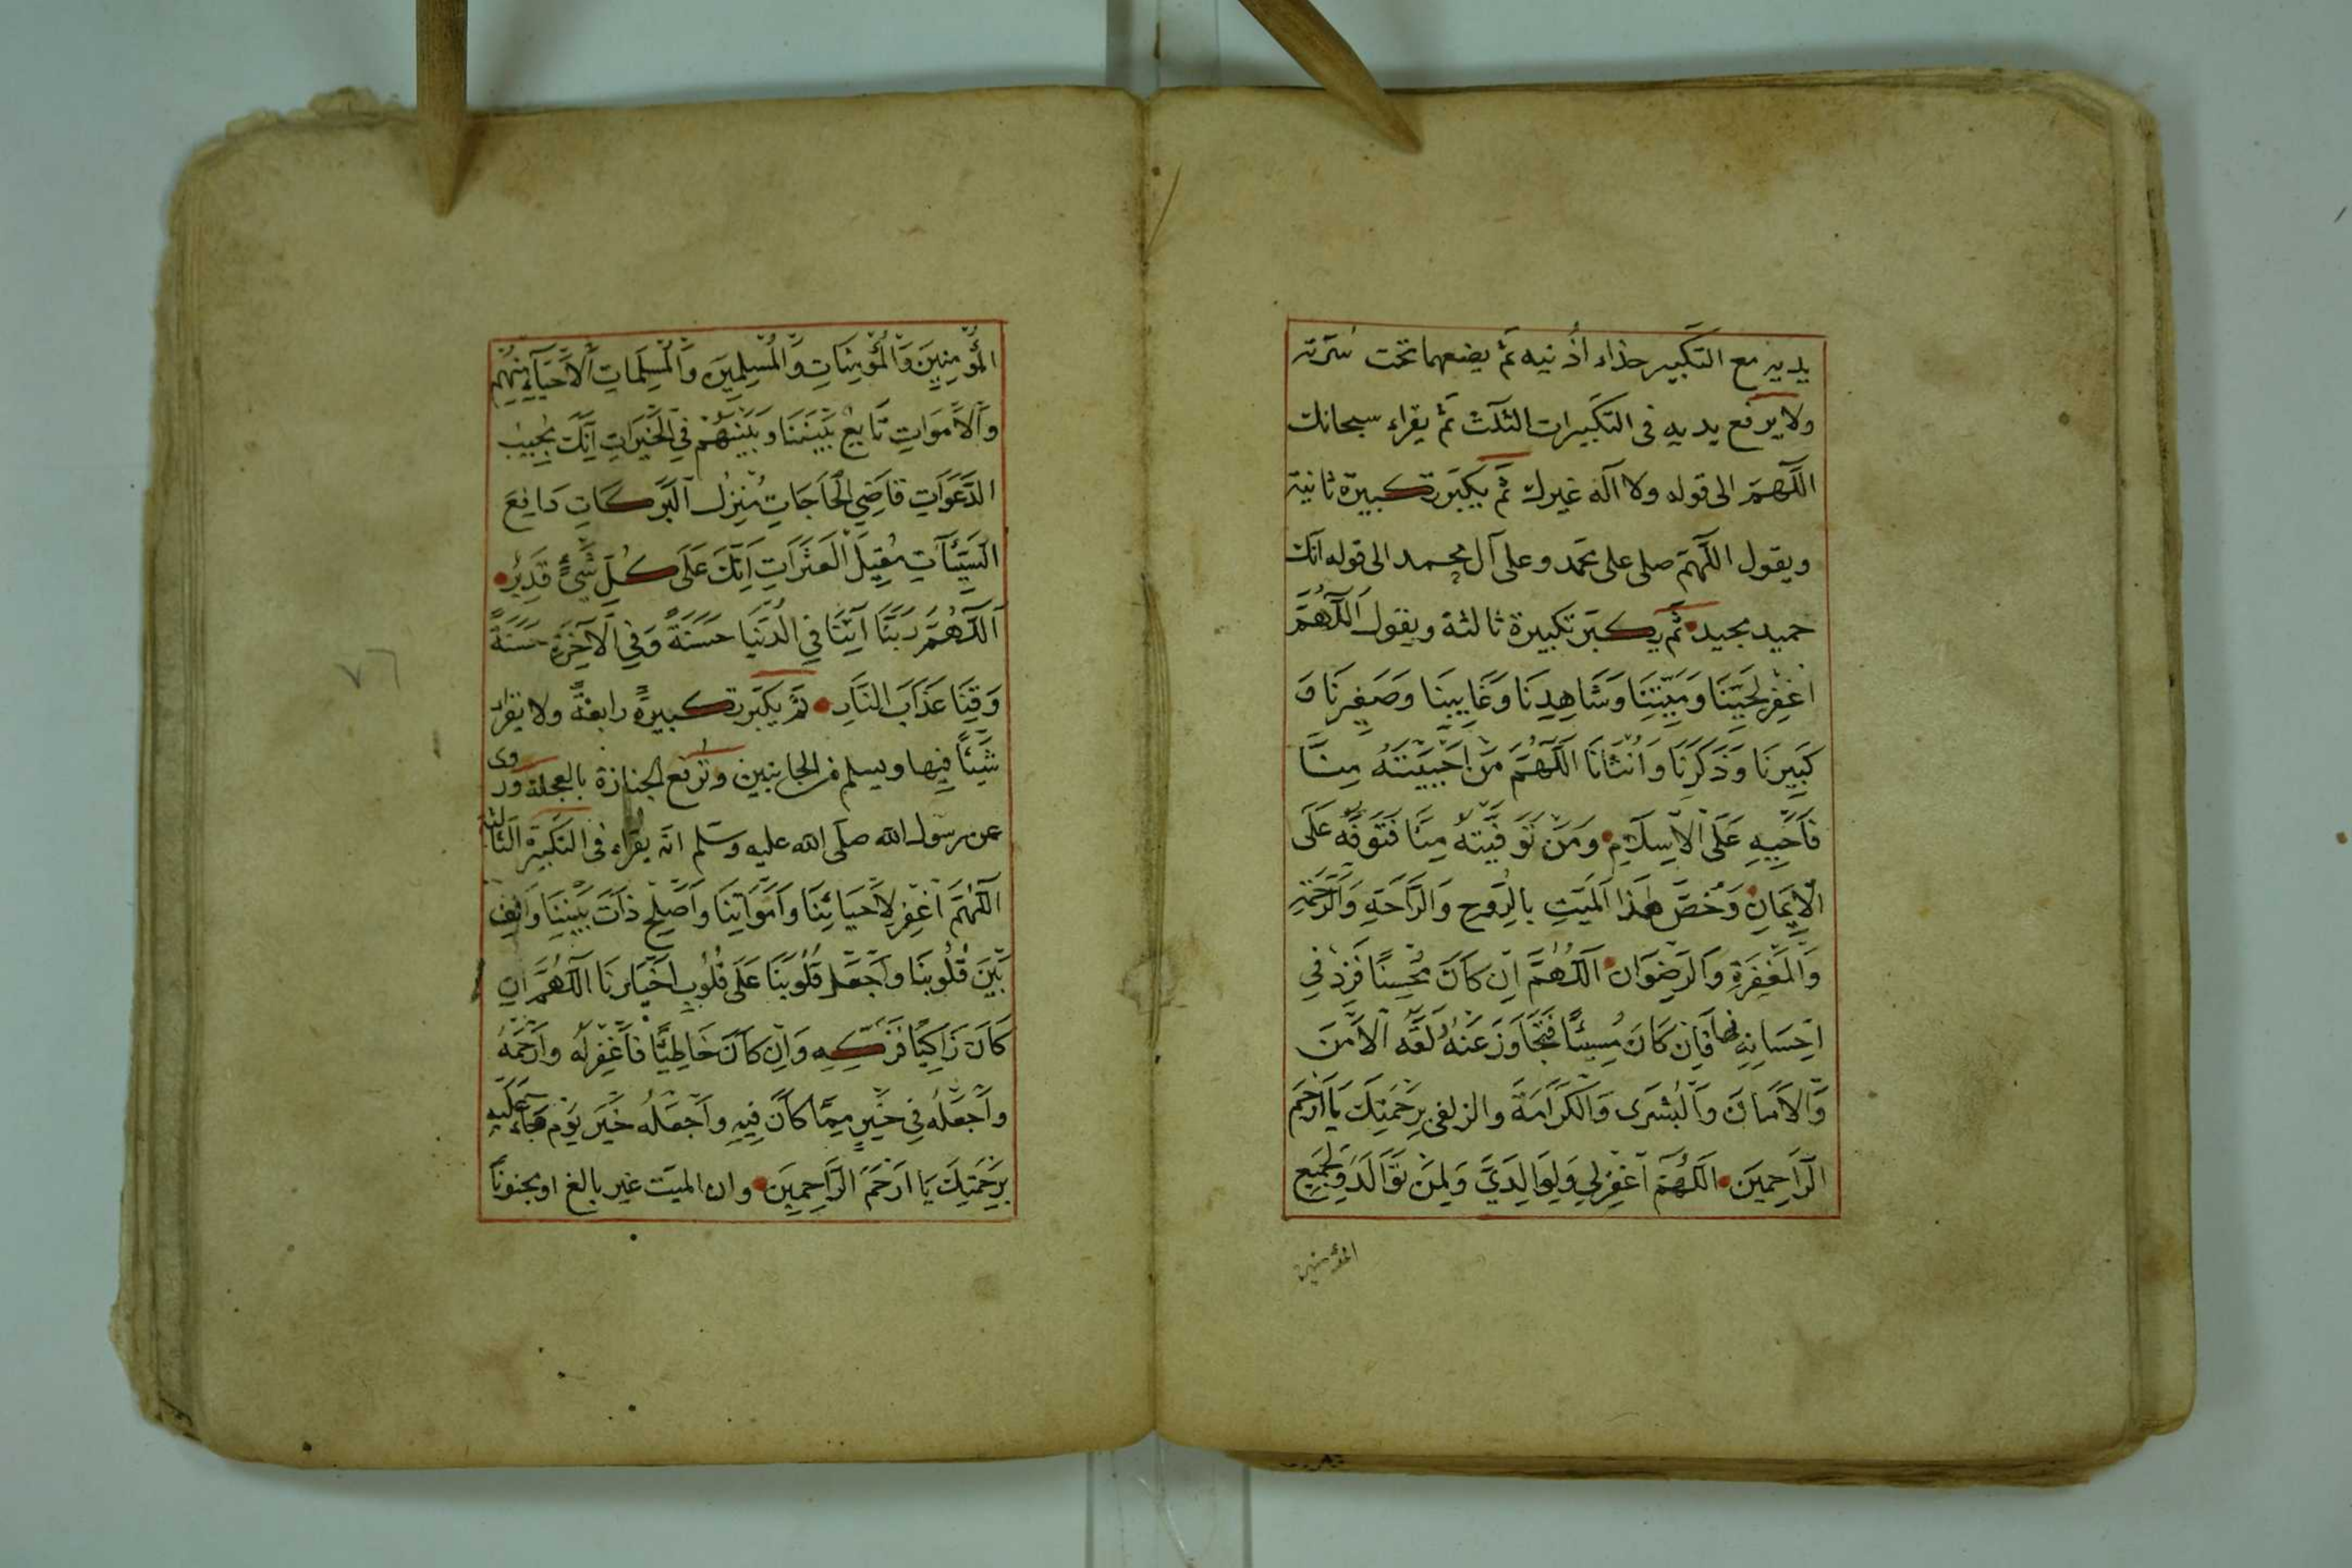 يديه مع التكبير حذاء اُذنيه ثم يضعهما تحت سُرّته
ولا يرفع يديه فى التكبيرات الثلث ثم يقراء سبحانك
اللّهمّ الى قوله ولا اله غيرك ثم يكبّر تكبيرة ثانية
ويقول اللّهمّ صلى على محمد وعلى آل محمد الى قوله انك
حميد مجيد ثم يكبّر تكبيرة ثالثة ويقول اَللّٰهُمَّ
اغْفِرْ لِحَيِّنَا وَمَيِّتِنَا وَشَاهِدِنَا وَغَايِبِنَا وَصَغِيرِنَا وَ
كَبِيرِنَا وَذَكَرِنَا وَاُنْثَانَا اَللّٰهُمَّ مَنْ اَحْيَيْتَهُ مِنَّا
فَاَحْيِهِ عَلَى الْاِسْلَامِ وَمَنْ تَوَفَّيْتَهُ مِنَّا فَتَوَفَّهُ عَلَى
الْاِيمَانِ وَخُصَّ هٰذَا الْمَيِّتَ بِالرَّوْحِ وَالرَّاحَةِ وَالرَّحْمَةِ
وَالْمَغْفِرَةِ وَالرِّضْوَانِ اَللّٰهُمَّ اِنْ كَانَ مُحْسِنًا فَزِدْ فِي
اِحْسَانِهِ فَاِنْ كَانَ مُسِيئًا فَتَجَاوَزْ عَنْهُ لَقِّهِ الْاَمْنَ
وَالْاَمَانَ وَالْبُشْرَى وَالْكَرَامَةَ والزلفى بِرَحْمَتِكَ يَا اَرْحَمَ
الرَّاحِمِينَ اَللّٰهُمَّ اغْفِرْ لِي وَلِوَالِدَيَّ وَلِمَنْ تَوَالَدَ وَلِجَمِيعِ
المؤمنين
الْمُؤْمِنِينَ وَالْمُؤْمِنَاتِ وَالْمُسْلِمِينَ وَالْمُسْلِمَاتِ اَلْاَحْيَاءِ مِنْهُمْ
وَالْاَمْوَاتِ تَابِعْ بَيْنَنَا وَبَيْنَهُمْ فِي الْخَيْرَاتِ اِنَّكَ مُجِيبُ
الدَّعَوَاتِ قَاضِيَ الْحَاجَاتِ مُنْزِلُ الْبَرَكَاتِ دَافِعَ
السَّيِّئَاتِ مُقِيلَ الْعَثَرَاتِ اِنَّكَ عَلَى كُلِّ شَيْءٍ قَدِيرٌ
اَللّٰهُمَّ رَبَّنَا آتِنَا فِي الدُّنْيَا حَسَنَةً وَفِي الْآخِرَةِ حَسَنَةً
وَقِنَا عَذَابَ النَّارِ ثم يكبّر تكبيرةً رابعةً ولا يقراء
شَيْئًا فيها ويسلم من الجانبين وترفع الجنازة بالعجلة وروى
عن رسول الله صلى الله عليه وسلم انه يقراء فى التكبيرة الثالثة
اَللّٰهُمَّ اغْفِرْ لِاَحْيَائِنَا وَاَمْوَاتِنَا وَاَصْلِحْ ذَاتَ بَيْنِنَا وَالِّفْ
بَيْنَ قُلُوبِنَا وَاجْعَلْ قُلُوبَنَا عَلَى قُلُوبِ اَخْيَارِنَا اَللّٰهُمَّ اِنْ
كَانَ زَاكِيًا فَزَكِّهِ وَاِنْ كَانَ خَاطِئًا فَاغْفِرْ لَهُ وَارْحَمْهُ
وَاجْعَلْهُ فِي خَيْرٍ مِمَّا كَانَ فِيهِ وَاجْعَلْهُ خَيْرَ يَوْمٍ جَاءَ عَلَيْهِ
بِرَحْمَتِكَ يَا اَرْحَمَ الرَّاحِمِينَ وان الميّت غير بالغ او مجنونًا
٧٦